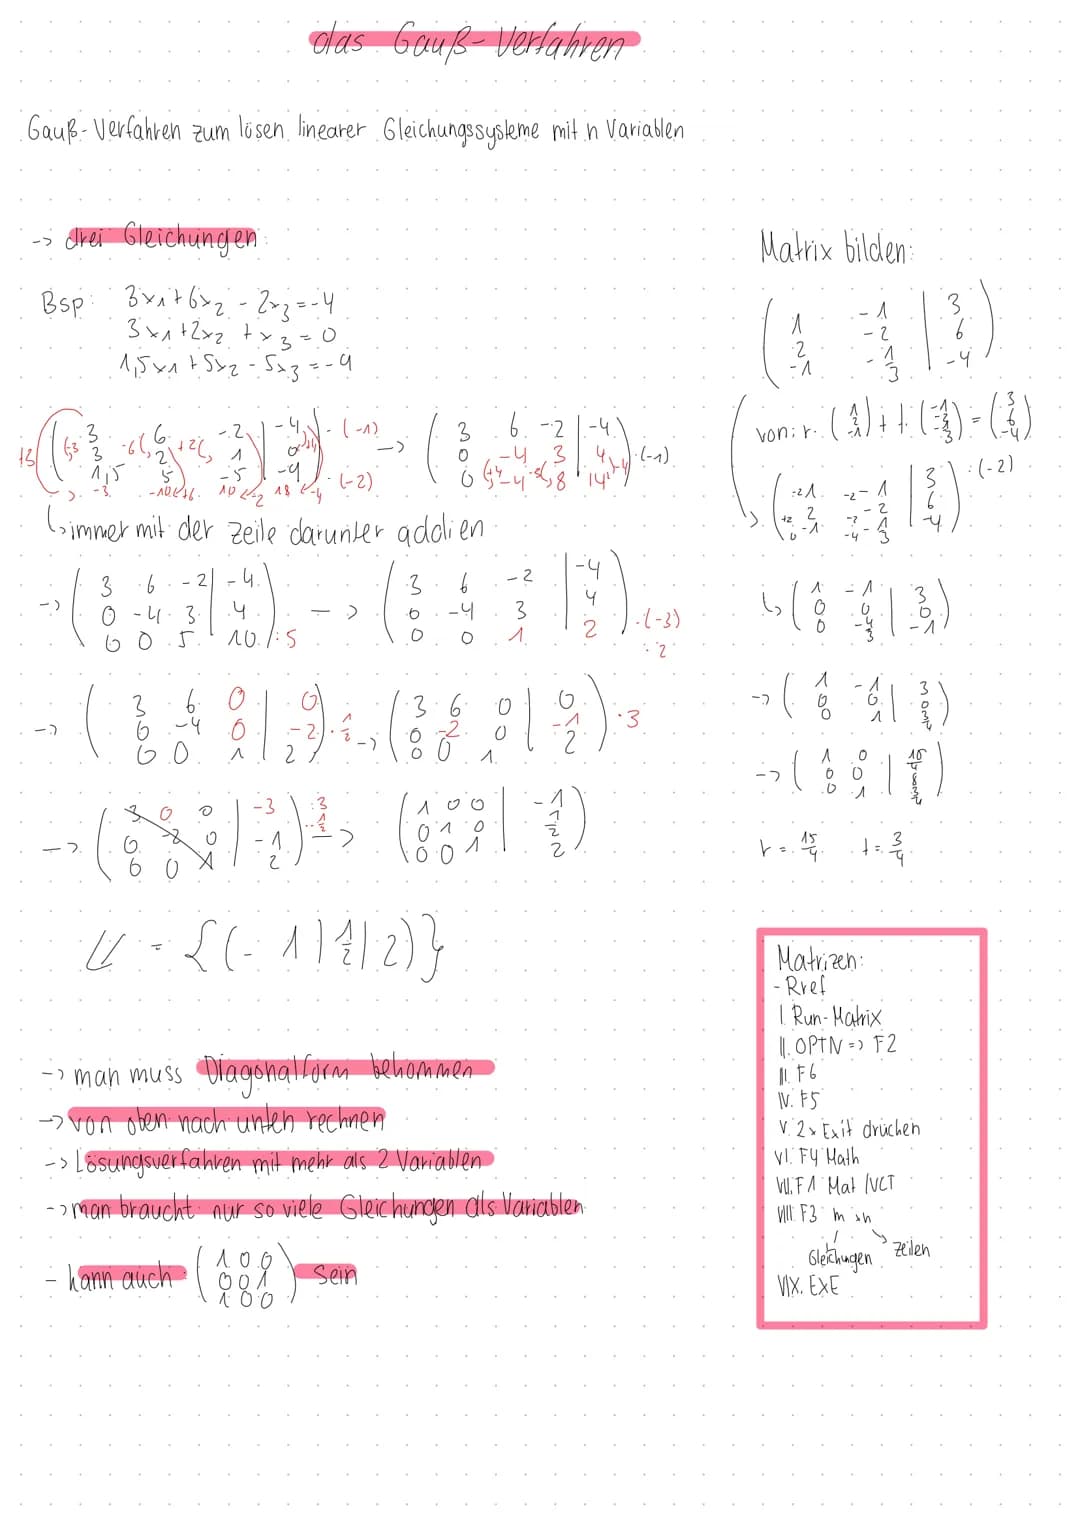 das Gauß-Verfahren
Gauß-Verfahren zum lösen linearer Gleichungssysteme mit n Variablen
-> drei Gleichungen
Bsp: 3x₁+6x₂ - 2x₃ = -4
3x₁+2x₂ + x₃ = 0
1,5x₁ + 5x₂ - 5x₃ = -9
3 6 -2 | -4 ·(-1)
3 2 1 | 0
1,5 5 -5 | -9 ·(-2)
-> 3 6 -2 | -4
0 -4 3 | 4 ·(-1)
0 -4 8 | 14
↳ immer mit der Zeile darunter addien
-> 3 6 -2 | -4
0 -4 3 | 4
0 0 5 | 10 :5
-> 3 6 -2 | -4
0 -4 3 | 4
0 0 1 | 2 ·(-3) ·2
-> 3 6 0 | 0
0 -4 0 | -2 ·1/2
0 0 1 | 2
-> 3 6 0 | 0
0 -2 0 | -1 ·3
0 0 1 | 2
-> 3 0 0 | -3 :3
0 -2 0 | -1
0 0 1 | 2
-> 1 0 0 | -1
0 1 0 | 1/2
0 0 1 | 2
𝕃 = {(-1|1/2|2)}
-> man muss Diagonalform bekommen
-> von oben nach unten rechnen
-> Lösungsverfahren mit mehr als 2 Variablen
-> man braucht nur so viele Gleichungen als Variablen
- kann auch (1 0 0
0 0 1
1 0 0) sein
Matrix bilden:
1 -1 | 3
2 -2 | 6
-1 -1/3 | -4
von: r·
:(-2)
-> 1 -1 | 3
0 0 | 0
r = 15/4 t = 3/4
Matrizen:
- Rref
I. Run-Matrix
II. OPTN => F2
III. F6
IV. F5
V. 2x Exit drücken
VI. F4 Math
VII. F1 Mat/VCT
VIII. F3 m x n
Gleichungen Zeilen
VIX. EXE